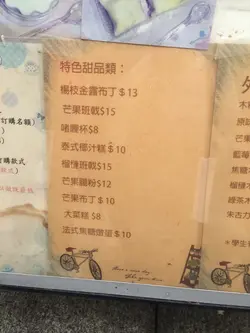 特色甜品類：
楊枝金露布丁 $13
芒果班戟$15
啫喱杯$8
泰式椰汁糕$10
榴槤班戟$15
芒果腸粉$12
芒果布丁$10
大菜糕 $8
法式焦糖燉蛋$10
訂購名額)
購款式
外
木糠
原味
芒果
藍莓
焦糖
榴槤
綠茶
朱古力
*學生